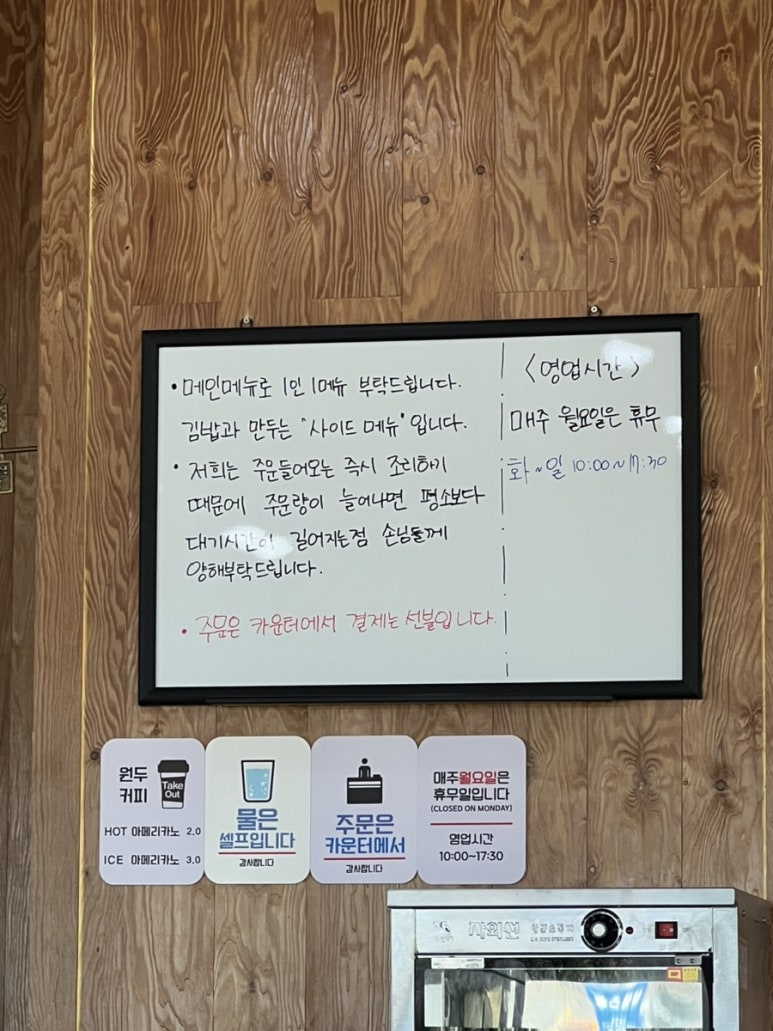 • 메인메뉴로 1인 1메뉴 부탁드립니다.
김밥과 만두는 "사이드 메뉴" 입니다.
• 저희는 주문들어오는 즉시 조리하기
때문에 주문량이 늘어나면 평소보다
대기시간이 길어지는점 손님들께
양해부탁드립니다.
• 주문은 카운터에서 결제는 선불입니다.
<영업시간>
매주 월요일은 휴무
화~일 10:00~17:30
원두
커피
Take
Out
HOT 아메리카노 2.0
ICE 아메리카노 3.0
물은
셀프입니다
감사합니다
주문은
카운터에서
감사합니다
매주월요일은
휴무일입니다
(CLOSED ON MONDAY)
영업시간
10:00~17:30
자외선